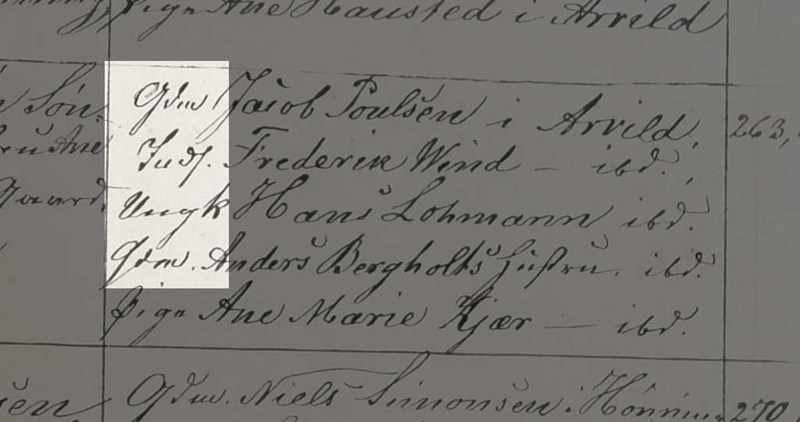 Pige Ane Hausted i Arvild
Søn- Gdm Jacob Poulsen i Arvild, 263,
Inds. Frederik Wind — ibd.,
gaard Ungk Hans Lohmann ibd.
Gdm. Anders Bergholts Hustru, ibd.
Pige Ane Marie Kjær — ibd.
sen Gdm. Niels Simonsen i 270